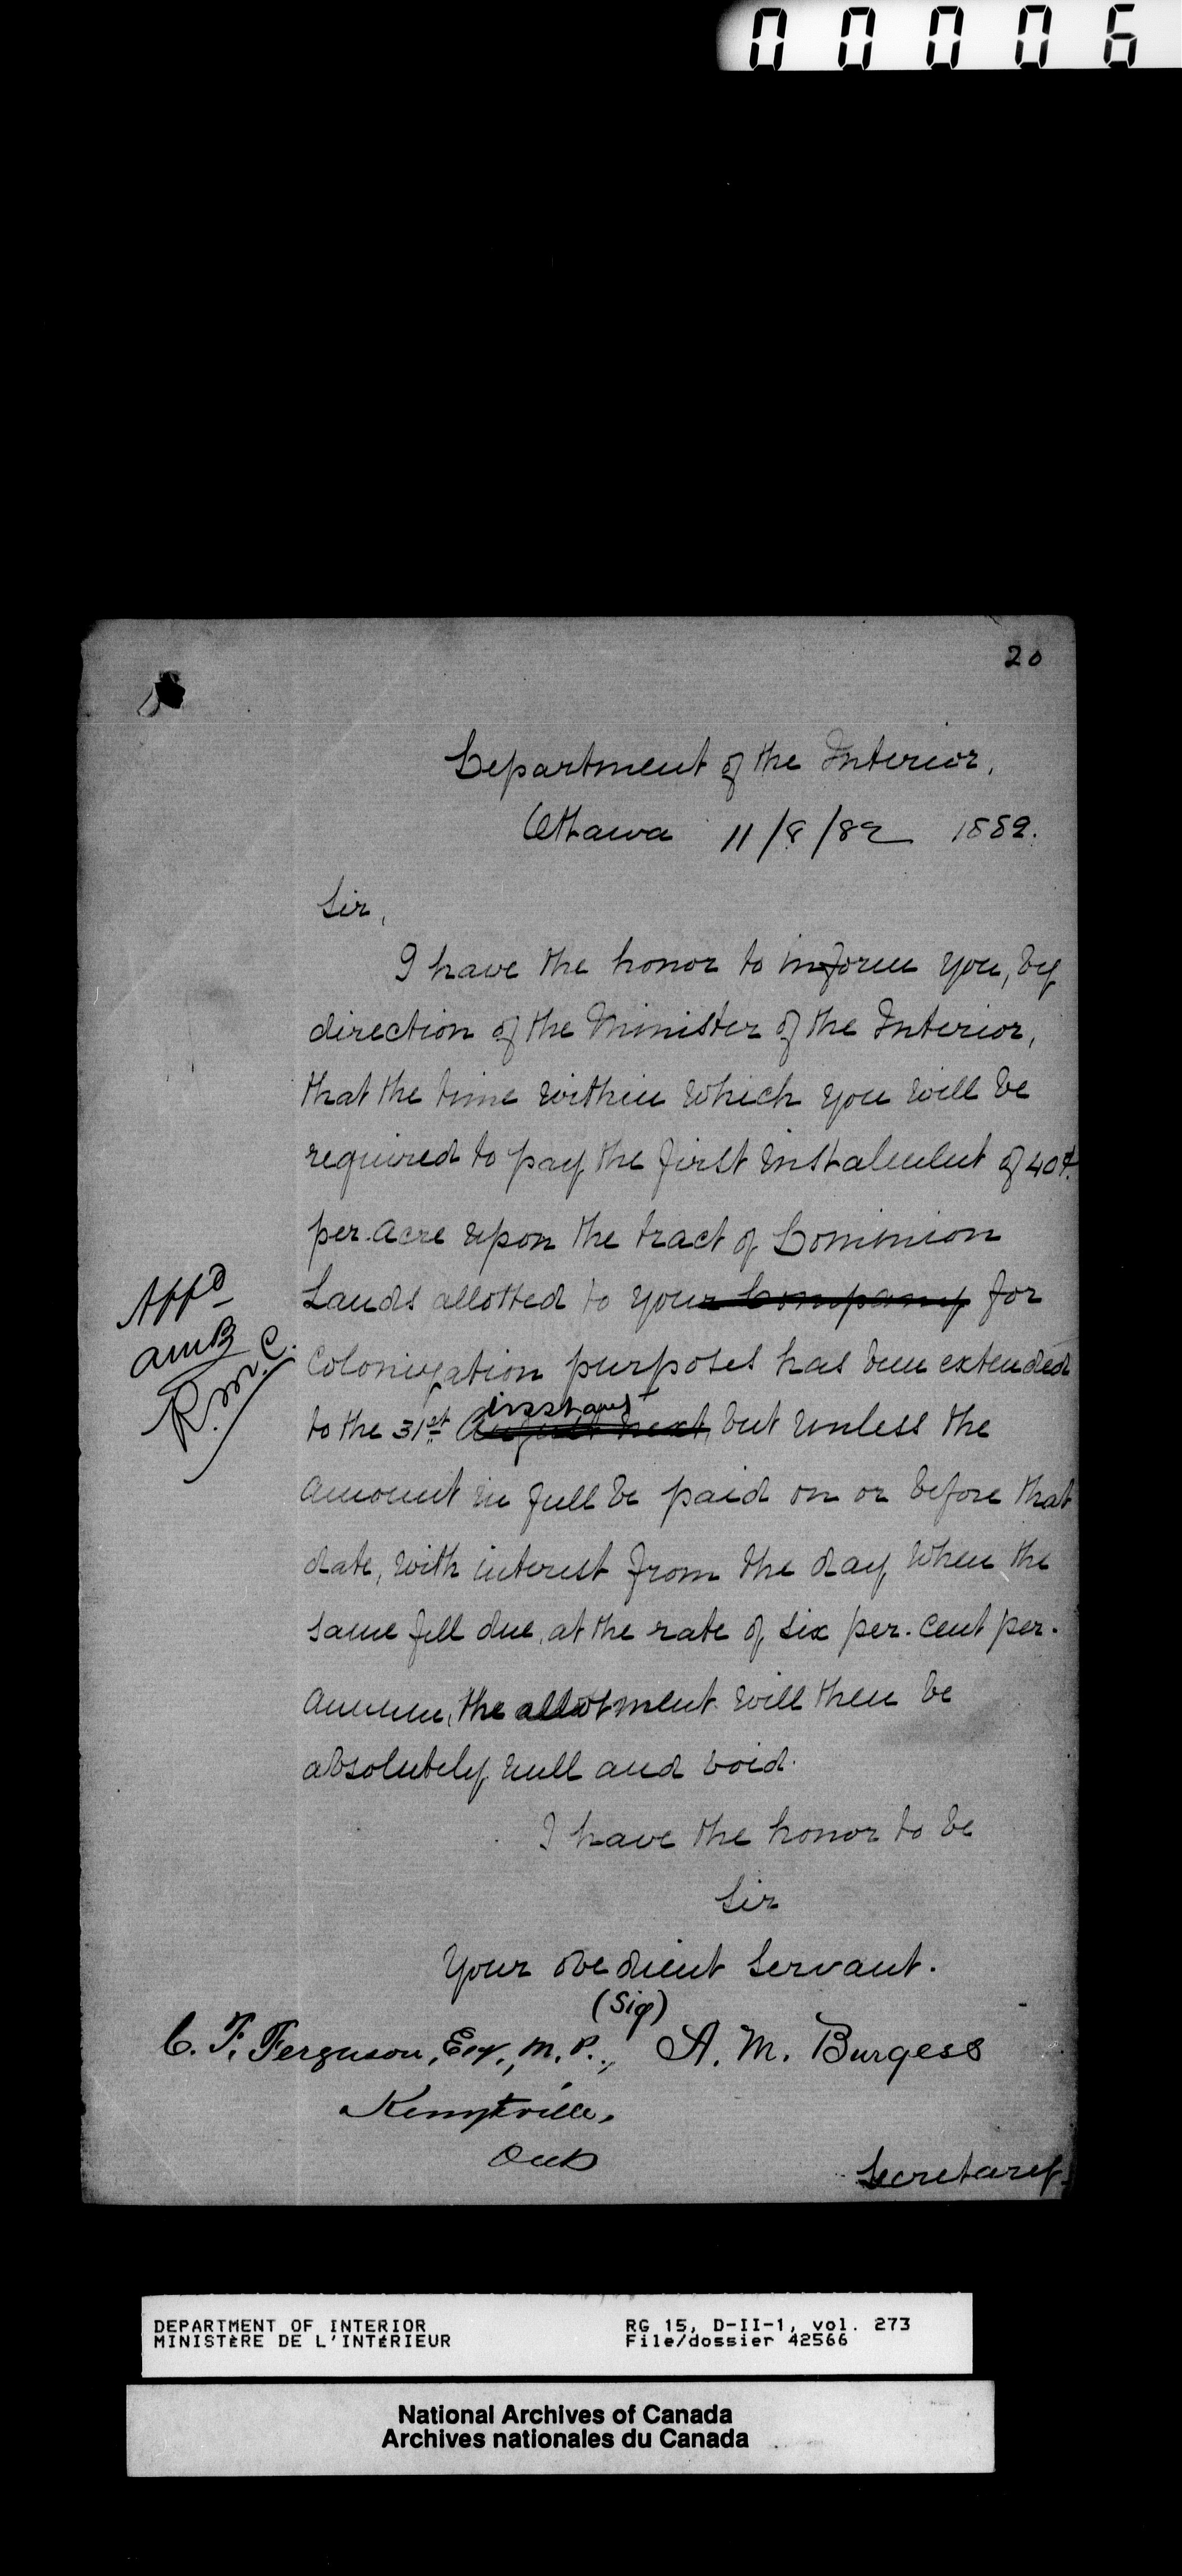 00006
20
Department of the Interior,
Ottawa 11/8/82 1882.
Sir,
I have the honor to inform you, by
direction of the Minister of the Interior,
that the time within which you will be
required to pay the first instalment of 40¢
per acre upon the tract of Dominion
Lands allotted to your Company for
Colonization purposes has been extended
instant
to the 31st August next, but unless the
amount in full be paid on or before that
date, with interest from the day when the
same fell due, at the rate of six per. cent per.
annum, the allotment will then be
absolutely null and void.
I have the honor to be
Sir
Your obedient Servant.
(Sig)
C. F. Ferguson, Esq., M.P., A. M. Burgess
Kemptville,
Ont
Secretary.
Appd
AMB
R.M.C.
DEPARTMENT OF INTERIOR RG 15, D-II-1, vol. 273
MINISTÈRE DE L'INTÉRIEUR File/dossier 42566
National Archives of Canada
Archives nationales du Canada